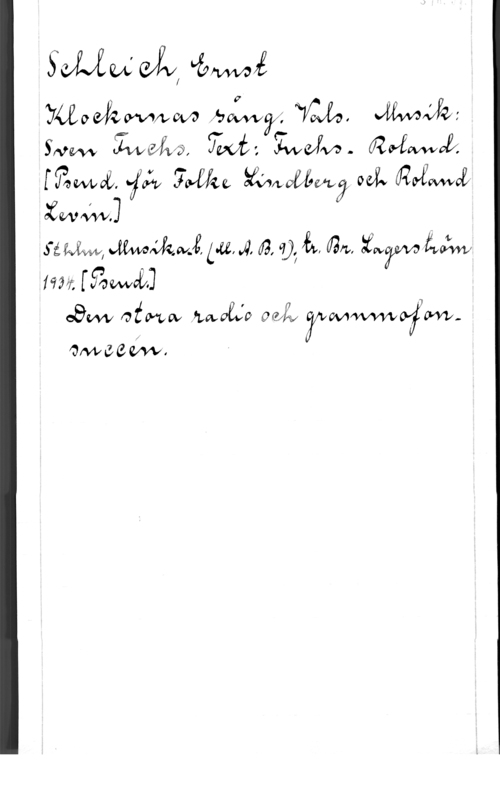 Schleich, Ernst
Klockornas sång. Vals. Musik:
Sven Fuchs. Text: Fuchs - Roland.
[Pseud. för Folke Lindberg och Roland
Levin.]
Sthlm, Musikaub. (M. A. B. 9), tr. Br. Lagerström
1934. [Pseud.]
Den stora radio och grammofon-
succén.